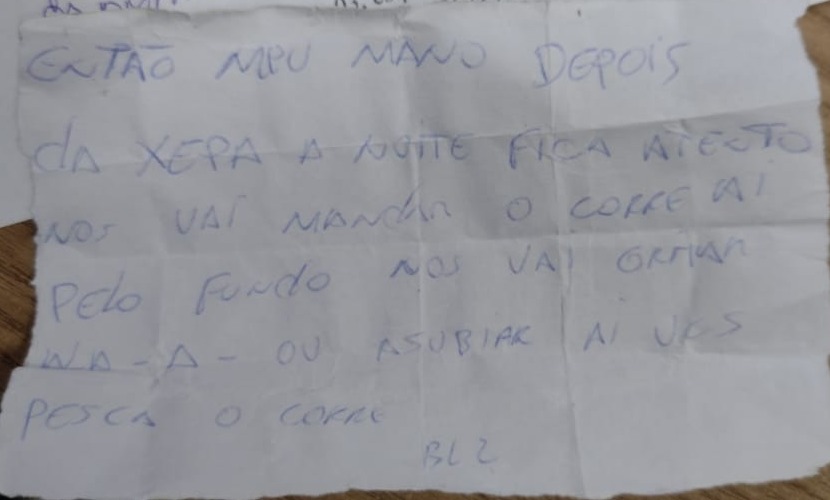 ENTÃO MEU MANO DEPOIS
dA XEPA A NOITE FICA ATEOTO
NOS VAI MANdAR O CORRE AI
PElo FUNdO NOS VAI GRITAR
NA - A - OU ASUBIAR AI VCS
PESCA O CORRE
BL2